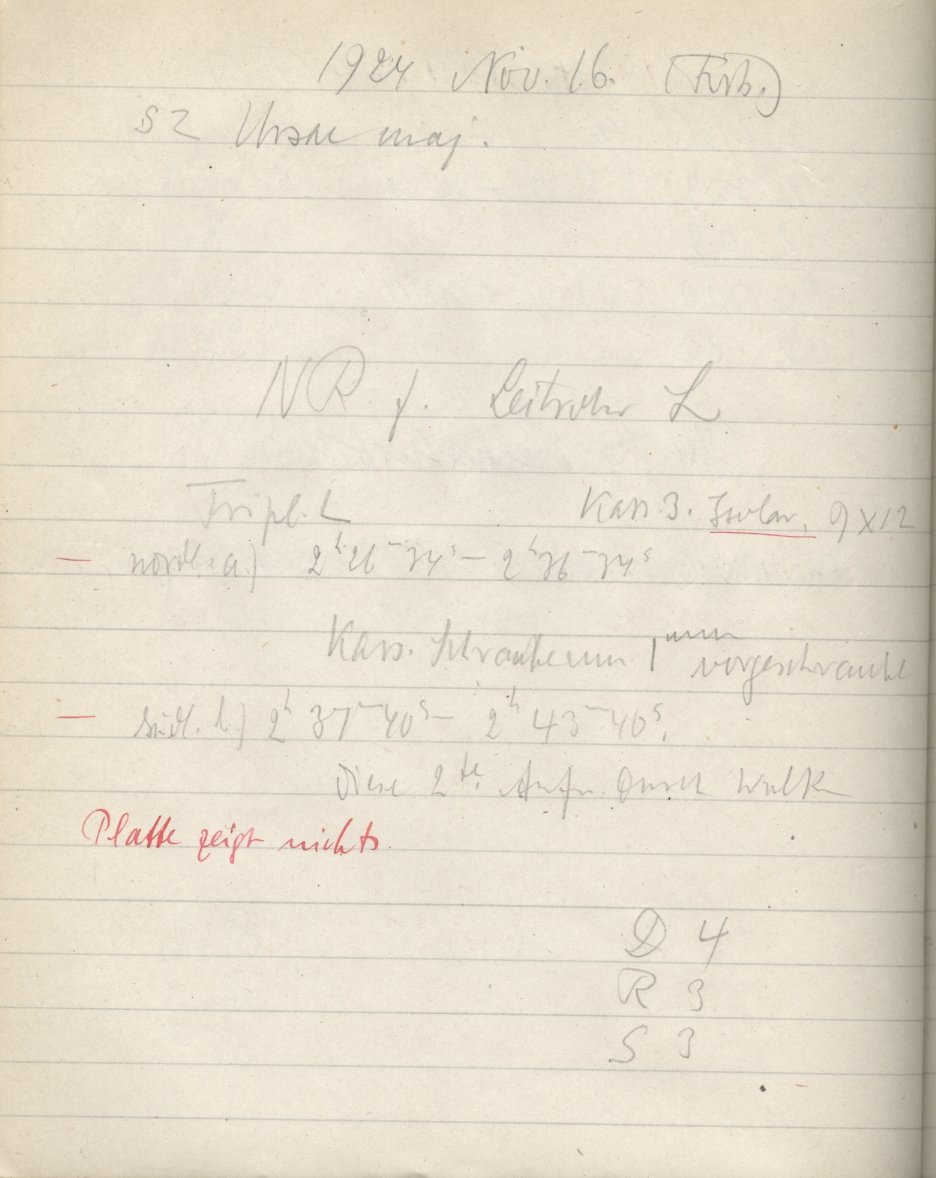 1924 Nov. 16.
SZ Ursae maj.
NR f. Leitrohr L
Tripl. L Kass 3. Isolar. 9 x 12
— nördl. a) 2h 26m 34s – 2h 36m 34s
Kass. Schraube um 1mm vorgeschraubt
— südl. b) 2h 37m 40s – 2h 43m 40s.
Diese 2te Aufn. durch Wolken
Platte zeigt nichts.
D 4
R 3
S 3